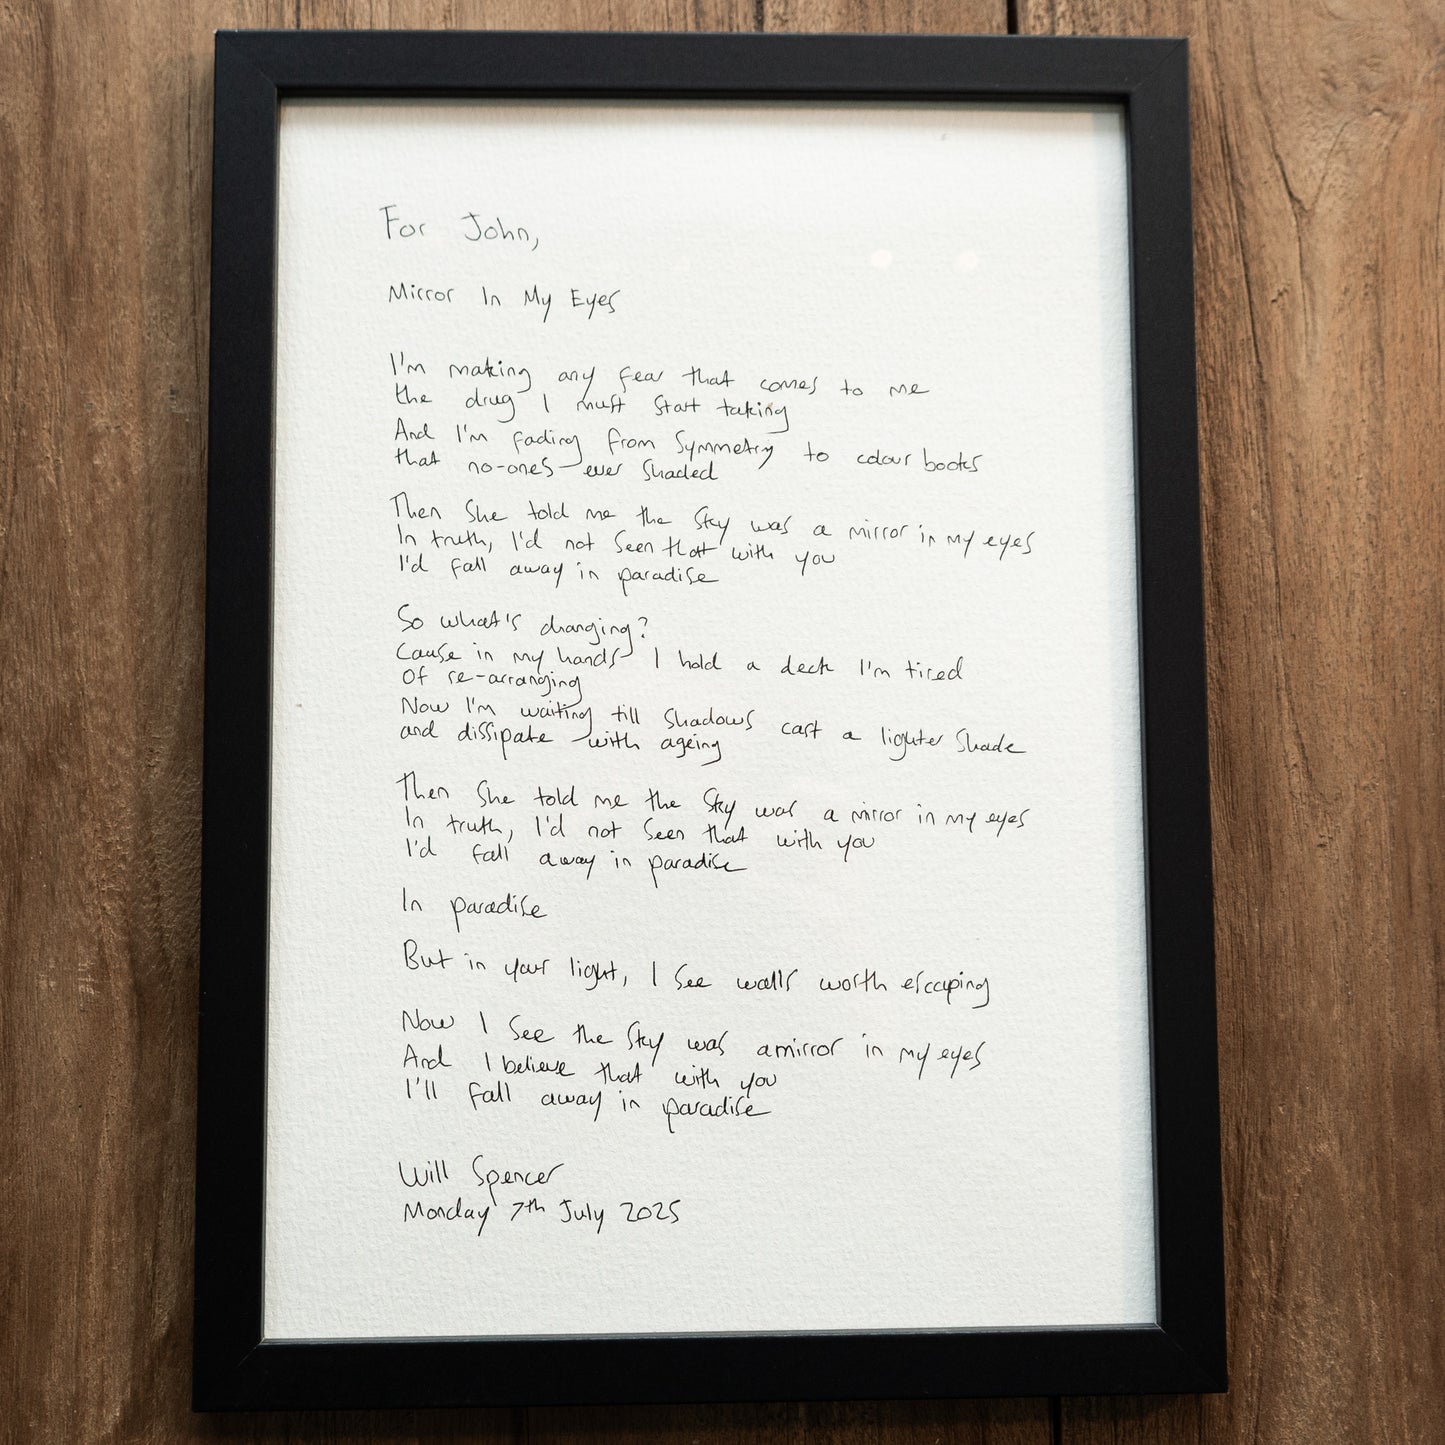 For John,
Mirror In My Eyes
I'm making any fear that comes to me
the drug I must start taking
And I'm fading from symmetry to colour books
that no-ones ever shaded
Then she told me the sky was a mirror in my eyes
In truth, I'd not seen that with you
I'd fall away in paradise
So what's changing?
Cause in my hands I hold a deck I'm tired
Of re-arranging
Now I'm waiting till shadows cast a lighter shade
and dissipate with ageing
Then she told me the sky was a mirror in my eyes
In truth, I'd not seen that with you
I'd fall away in paradise
In paradise
But in your light, I see walls worth escaping
Now I see the sky was a mirror in my eyes
And I believe that with you
I'll fall away in paradise
Will Spencer
Monday 7th July 2025